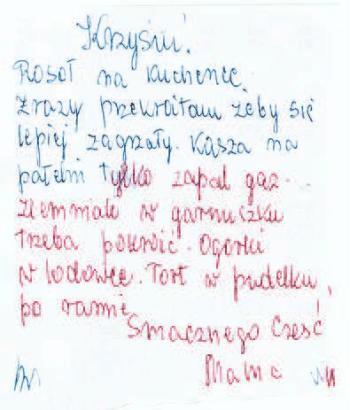 Krzysiu!
Rosół na kuchence.
Zrazy przekroiłam żeby się
lepiej zagrzały. Kasza na
patelni tylko zapal gaz...
Ziemniaki w garnuszku
trzeba pokroić. Ogórki
w lodówce. Tort w pudełku,
po ramie
Smacznego Cześć
Mama